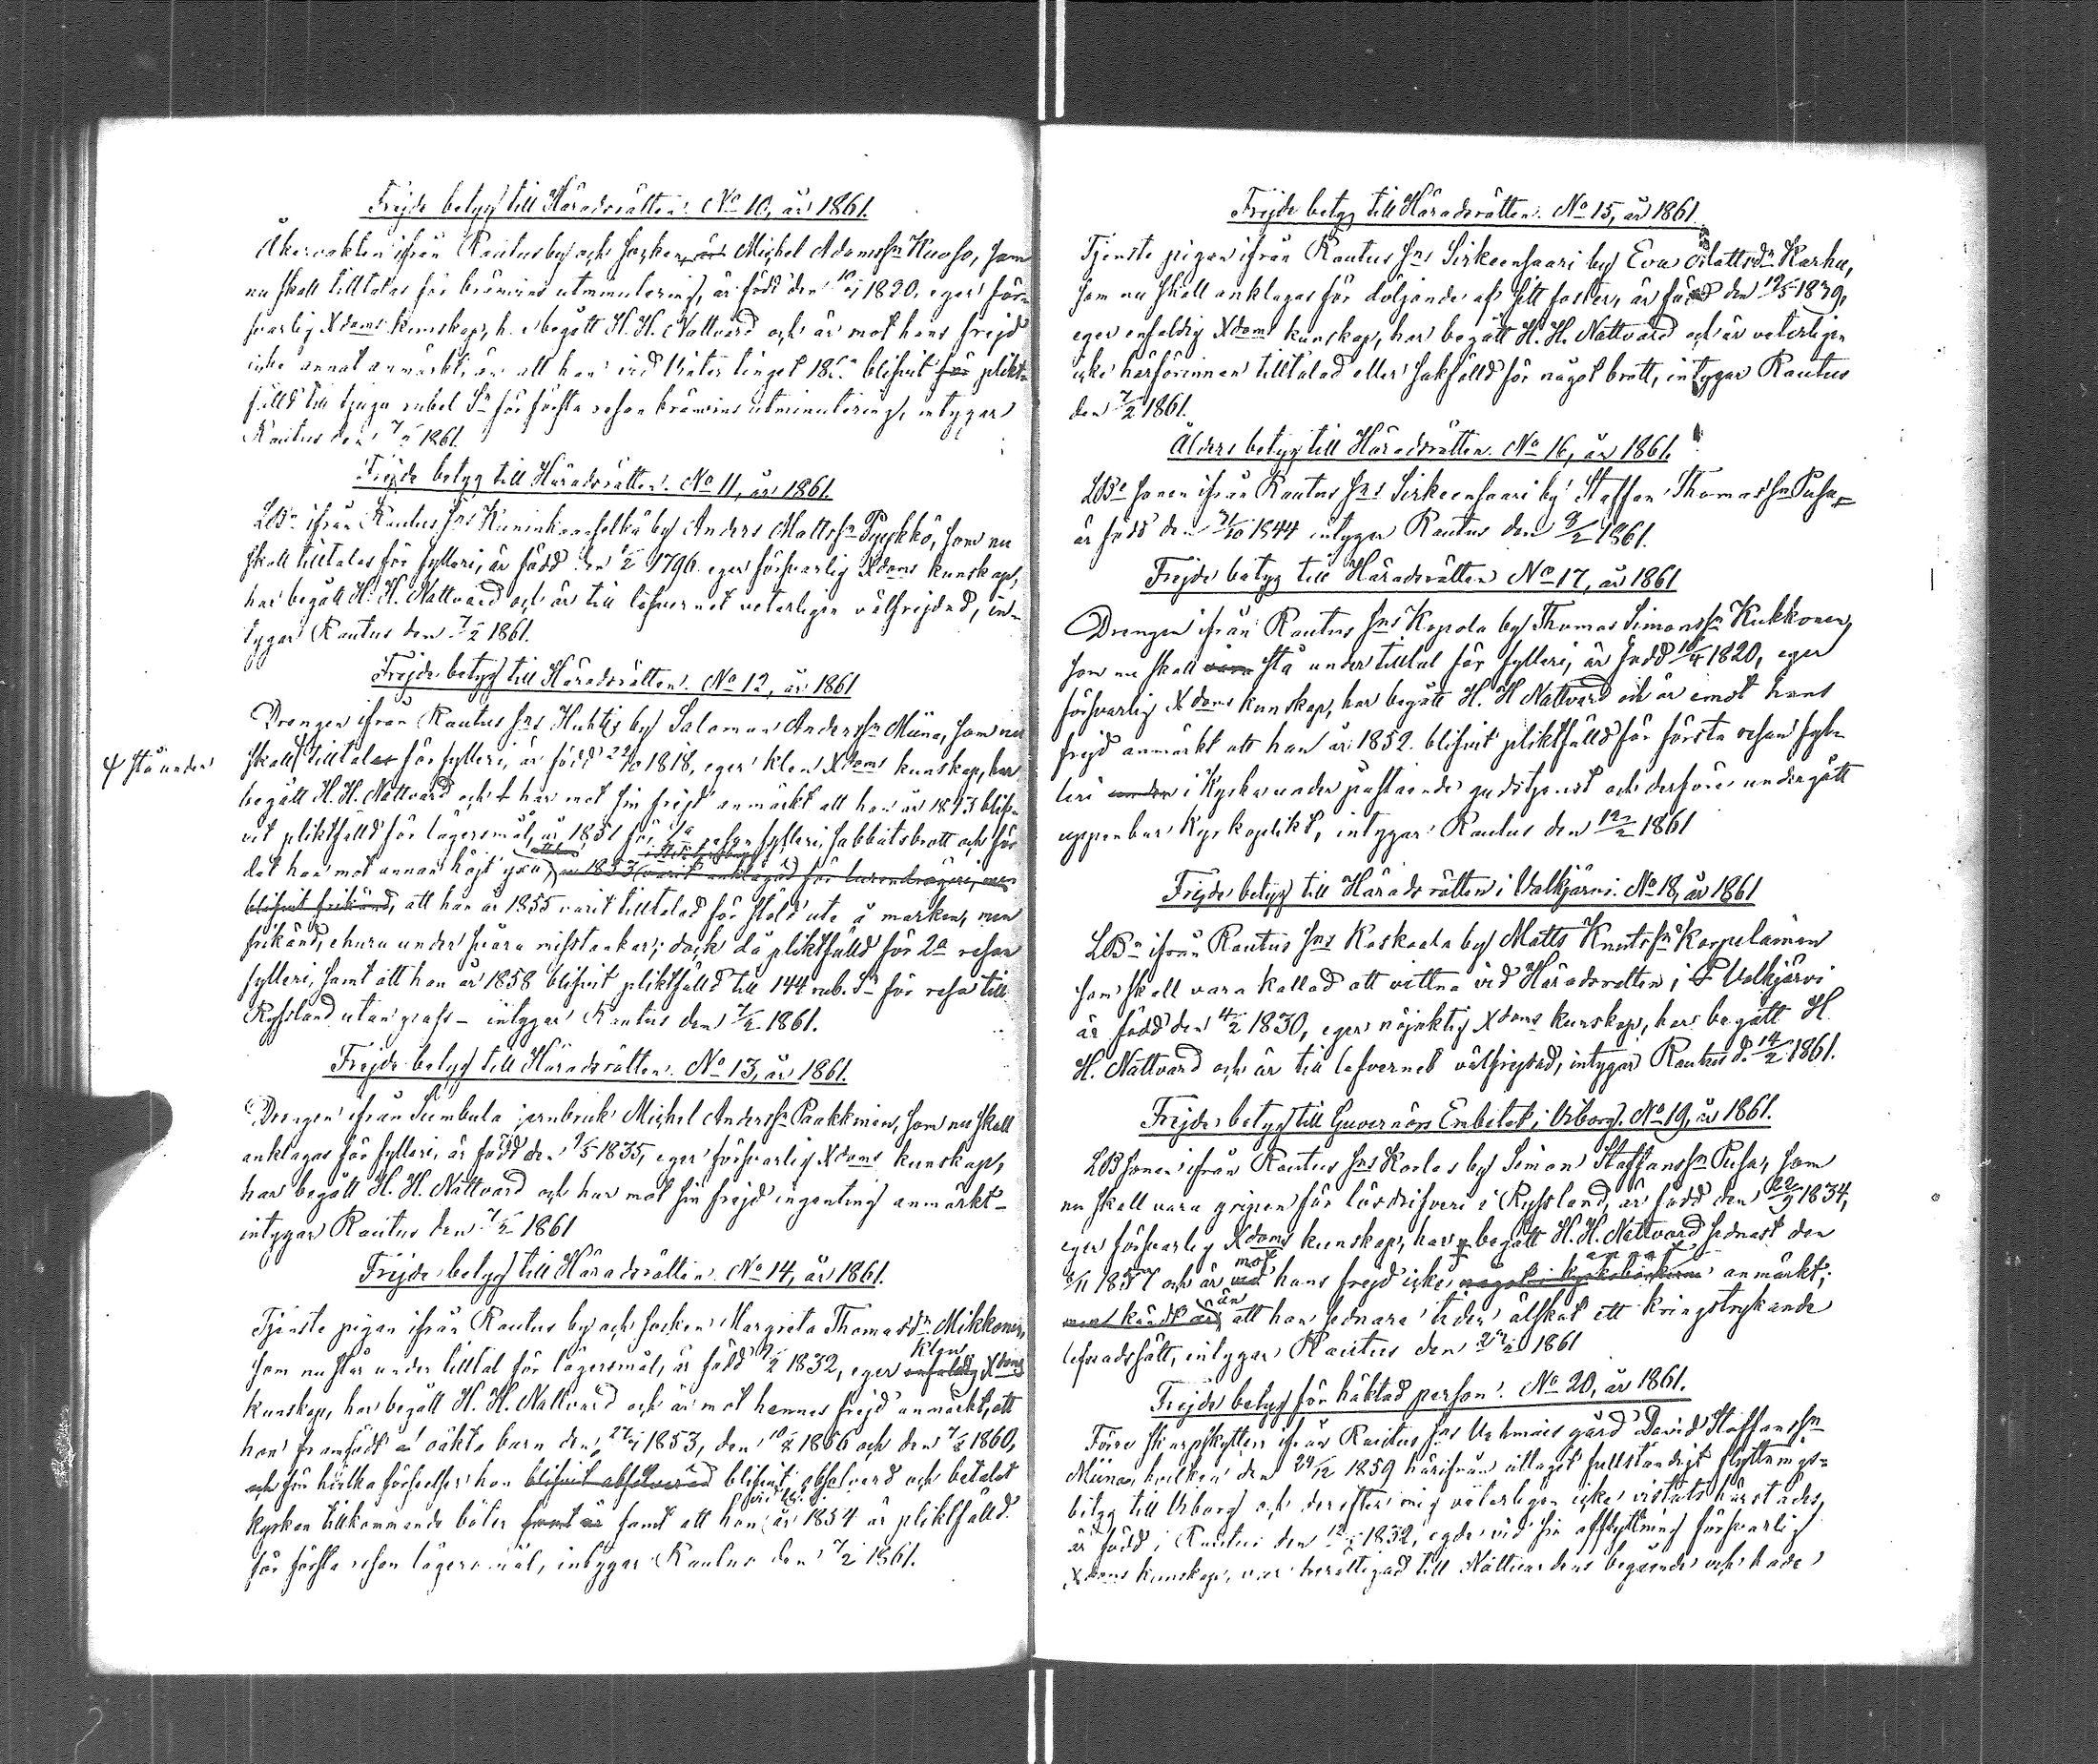 Frejde betyg till Häradsrätten. No 10, år 1861.
Åkervakten ifrån Rautus by och socken, är Michel Adamsson Kuosa, som
nu skall tilltalas för bränvins utminutering, är född den 1820, eger för-
svarlig Xdoms kunskap, h. begått H. H. Nattvard och är mot hans frejd
icke annat anmärkt, än att han vid Vinter tinget blifvit för plikt-
fälld till tjugu rubel Sr för första resan bränvins utminutering, intygar
Rautus den 7/2 1861.
Frejde betyg till Häradsrätten. No 11, år 1861.
LBn ifrån Rautus sns Kuninkaanselkä by Anders Mattssn Pyykkö, som nu
skall tilltalas för fylleri, är född den 1796. eger försvarlig Xdoms kunskap,
har begått H. H. Nattvard och är till lefvernet veterligen välfrejdad, in-
tygar Rautus den 7/2 1861.
Frejde betyg till Häradsrätten. No 12, år 1861
Drengen ifrån Rautus sns Huhti by Salomon Anderssn Miina, som nu
stå under
skall tilltalas för fylleri, är född 1818, eger klen Xdoms kunskap, har
begått H. H. Nattvard och har mot sin frejd anmärkt att han år 1843 blif-
vit pliktfälld för lägersmål, år 1851 för 1a resan fylleri, sabbatsbrott och för
det han mot annan höjt yxa, att 1853 varit anklagad för lurendrägeri, men
blifvit frikänd, att han år 1855 varit tilltalad för stöld ute å marken, men
frikänd, ehuru under svåra misstankar; dock då pliktfälld för 2a resan
fylleri, samt att han år 1858 blifvit pliktfälld till 144 rub. Sr för resa till
Ryssland utan pass - intygar Rautus den 7/2 1861.
Frejde betyg till Häradsrätten. No 13, år 1861.
Drengen ifrån Sumbula jernbruk Michel Anderssn Paakkinen, som nu skall
anklagas för fylleri, är född den 1835, eger försvarlig Xdoms kunskap,
har begått H. H. Nattvard och har mot sin frejd ingenting anmärkt -
intygar Rautus den 7/2 1861
Frejde betyg till Häradsrätten No 14, år 1861.
Tjenste pigan ifrån Rautus by och socken Margreta Thomasdr Mikkonen,
som nu står under tilltal för lägersmål, är född 1832, eger enfaldig klen Xdoms
kunskap, har begått H. H. Nattvard och är mot hennes frejd anmärkt, att
hon framfödt oäkta barn den 1853, den 1856 och den 1860,
och för hvilka förseelser hon blifvit absolverad blifvit absolverad och betalat
kyrkan tillkommande böter samt är samt att hon år 1854 är pliktfälld
för första resan lägersmål, intygar Rautus den 7/2 1861.
Frejde betyg till Häradsrätten. No 15, år 1861.
Tjenste pigan ifrån Rautus sns Sirkeensaari by Eva Mattsdr Karhu,
som nu skall anklagas för döljande af sitt foster, är född den 12/5 1839,
eger enfaldig Xdoms kunskap, har begått H. H. Nattvard och är veterligen
icke härförinnan tilltalad eller sakfälld för något brott, intygar Rautus
den 7/2 1861.
Ålders betyg till Häradsrätten. No 16, år 1861.
LBe sonen ifrån Rautus sns Sirkeensaari by Staffan Thomassn Pusa,
är född den 1844 intygar Rautus den 9/2 1861.
Frejde betyg till Häradsrätten No 17, år 1861
Drengen ifrån Rautus sns Kopola by Thomas Simonssn Kukkonen,
som nu skall vara stå under tilltal för fylleri, är född 1820, eger
försvarlig Xdoms kunskap, har begått H. H Nattvard och är emot hans
frejd anmärkt att han år 1852. blifvit pliktfälld för första resan fyl-
leri under i Kyrka under påstående gudstjenst och derföre undergått
uppenbar Kyrkoplikt, intygar Rautus den 12/2 1861
Frejde betyg till Häradsrätten i Valkjärvi. No 18, år 1861
LBn ifrån Rautus sns Kaskaala by Matts Knutssn Karpelainen
som skall vara kallad att vittna vid Häradsrätten i Valkjärvi
är född den 4/2 1830, eger nöjaktig Xdoms kunskap, har begått H.
H. Nattvard och är till lefvernet välfrejdad, intygar Rautus d. 14/2 1861.
Frejde betyg till Guvernörs Embetet i Viborg. No 19, år 1861.
LBsonen ifrån Rautus sns Korles by Simon Staffanssn Pusa, som
nu skall vara gripen för lösdrifveri i Ryssland, är född den 22/9 1834,
eger försvarlig Xdoms kunskap, har begått H. H. Nattvard sednast den
1857 och är vid mot hans frejd icke något i kyrkoböckerna annat anmärkt,
men kändt är, än att han sednare tider älskat ett kringstrykande
lefnadssätt, intygar Rautus den 1861
Frejde betyg för häktad person. No 20, år 1861.
Förre Skarpskytten ifrån Rautus sns gård David Staffanssn
Miina, hvilken den 29/12 1859 härifrån uttagit fullständigt flyttnings-
betyg till Viborg och derefter mig veterligen icke vistats härstädes,
är född i Rautus den 1832, egde vid sin afflyttning försvarlig
Xdoms kunskap, var berättigad till Nattvardens begående och hade